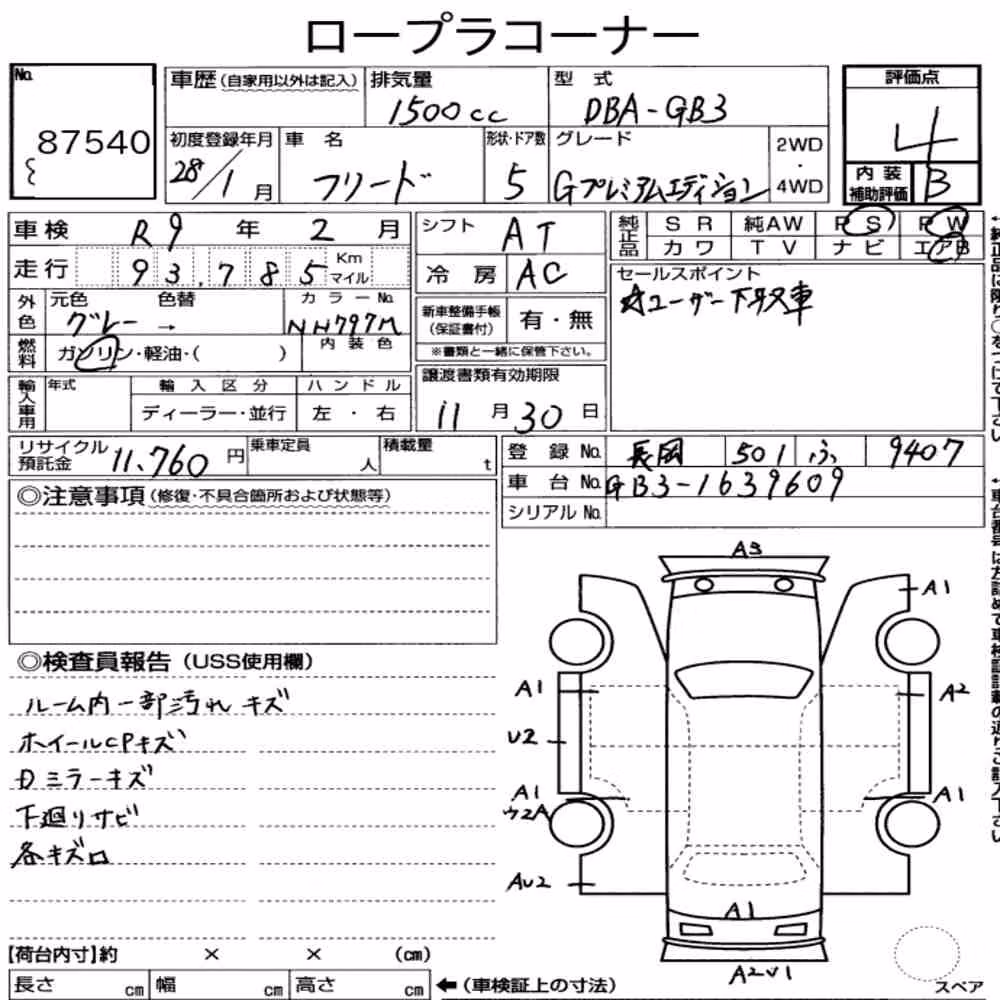 ロープラコーナー
No.
87540
車歴(自家用以外は記入)
排気量
1500cc
型式
DBA-GB3
評価点
4
初度登録年月
28/1月
車名
フリード
形状・ドア数
5
グレード
Gプレミアムエディション
2WD
・
4WD
内装
補助評価
B
車検 R9年2月
シフト
AT
純正品
SR 純AW PS PW
カワ TV ナビ エアB
走行 93,785 Km マイル
冷房 AC
セールスポイント
☆ユーザー下取車
外色
元色 色替
グレー →
カラーNo.
NH797M
新車整備手帳
(保証書付)
有・無
※書類と一緒に保管下さい。
燃料
ガソリン・軽油・( )
内装色
輸入車用
年式
輸入区分
ディーラー・並行
ハンドル
左・右
譲渡書類有効期限
11月30日
リサイクル
預託金
11,760円
乗車定員
人
積載量
t
登録No. 長岡 501 ふ 9407
車台No. GB3-1639609
シリアルNo.
◎注意事項(修復・不具合箇所および状態等)
◎検査員報告(USS使用欄)
ルーム内一部汚れ キズ
ホイールCPキズ
Dミラーキズ
下廻りサビ
各キズ
A3
A1
A1
A2
U2
A1
A1
AU2
A1
A2U1
スペア
【荷台内寸】約 × × (cm)
長さ cm 幅 cm 高さ cm
←(車検証上の寸法)